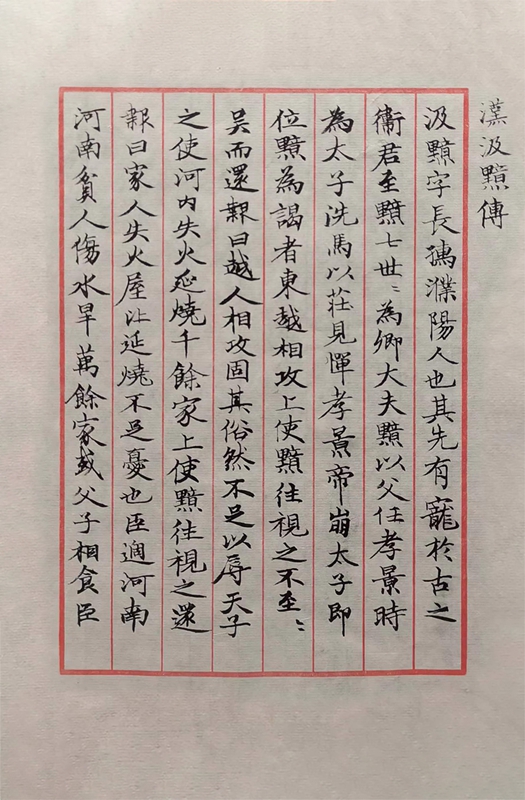 漢汲黯傳
汲黯字長孺濮陽人也其先有寵於古之
衞君至黯七世〻為卿大夫黯以父任孝景時
為太子洗馬以莊見憚孝景帝崩太子即
位黯為謁者東越相攻上使黯往視之不至〻
吳而還報曰越人相攻固其俗然不足以辱天子
之使河内失火延燒千餘家上使黯往視之還
報曰家人失火屋比延燒不足憂也臣過河南
河南貧人傷水旱萬餘家或父子相食臣